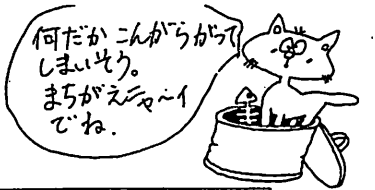 何だかこんがらがって
しまいそう。
まちがえニャ〜イ
でね.